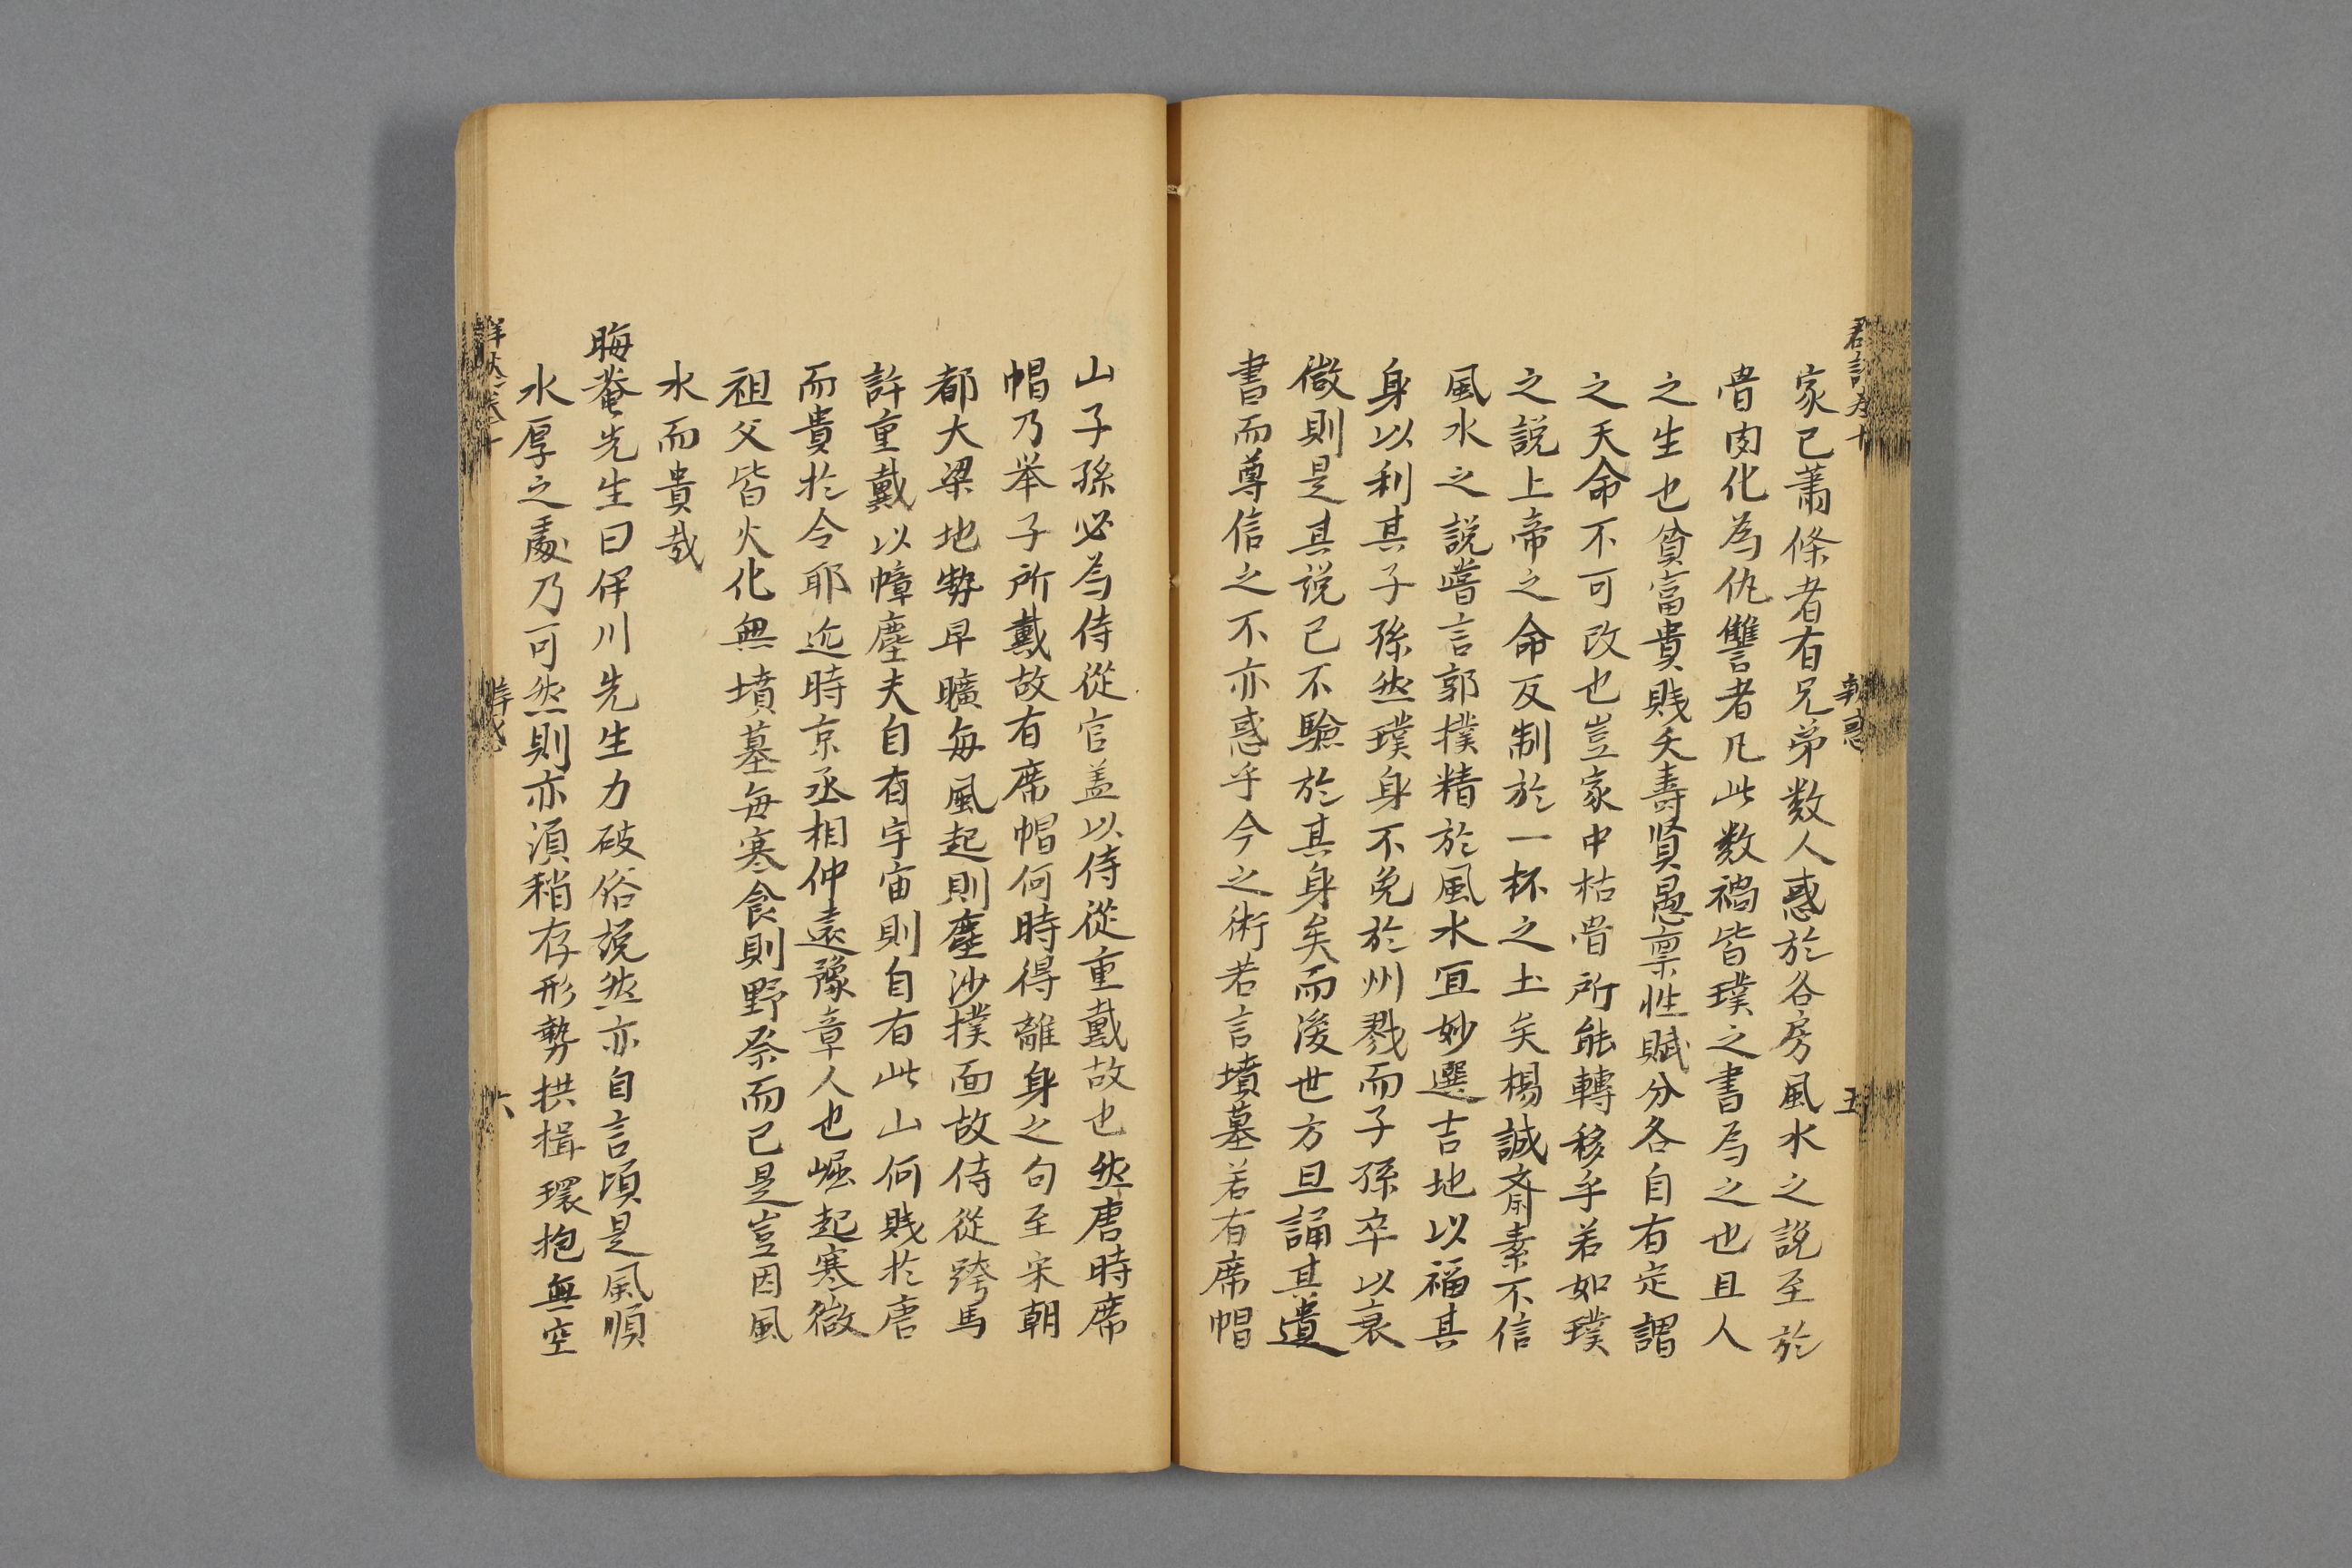 家已蕭條者有兄弟数人惑於各房風水之說至於
骨肉化為仇讐者凡此数禍皆璞之書為之也且人
之生也貧富貴賎夭壽贤愚禀性賦分各自有定謂
之天命不可改也豈家中枯骨所能轉移乎若如璞
之説上帝之命反制於一杯之土矣楊誠齋素不信
風水之説嘗言郭撲精於風水宜妙選吉地以福其
身以利其子孫然璞身不免於州戮而子孫卒以衰
微則是其説已不驗於其身矣而後世方且誦其遺
書而尊信之不亦惑乎今之術若言墳墓若有席帽
山子孫必為侍從官盖以侍從重戴故也然唐時席
帽乃举子所戴故有席帽何時得離身之句至宋朝
都大梁地勢早曠每風起則塵沙撲面故侍從跨馬
許重戴以幛塵夫自有宇宙則自有此山何賎於唐
而貴於今耶近時京丞相仲遠豫章人也崛起寒微
祖父皆火化無墳墓每寒食則野祭而已是豈因風
水而貴哉
晦菴先生曰伊川先生力破俗説然亦自言頃是風順
水厚之處乃可然則亦湏稍存形勢拱揖環抱無空
五
六